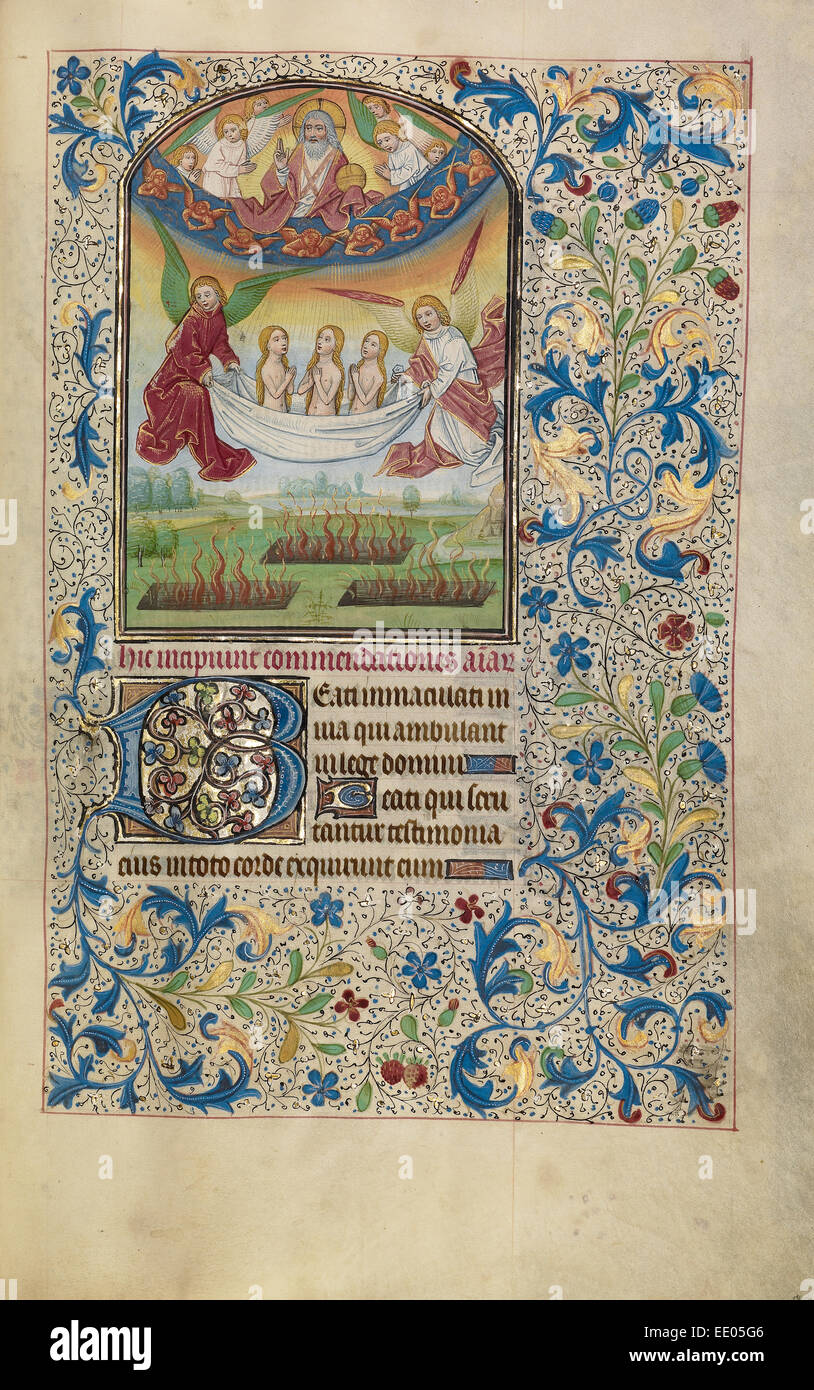 hic incipiunt commendationes aīar
Beati immaculati in
uia qui ambulant
in lege domini
Beati qui scru
tantur testimonia
eius in toto corde exquirunt eum
alamy
Image ID: EE05G6
www.alamy.com
EE05G6